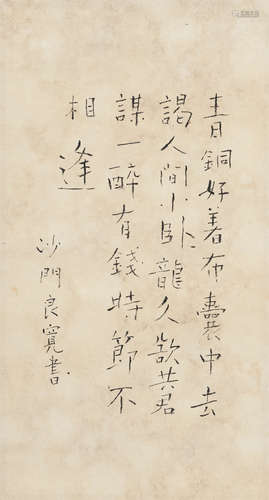 青銅好着布囊中去
謁人間小卧龍久欲共君
謀一醉有錢時節不
相逢
沙門良寬書